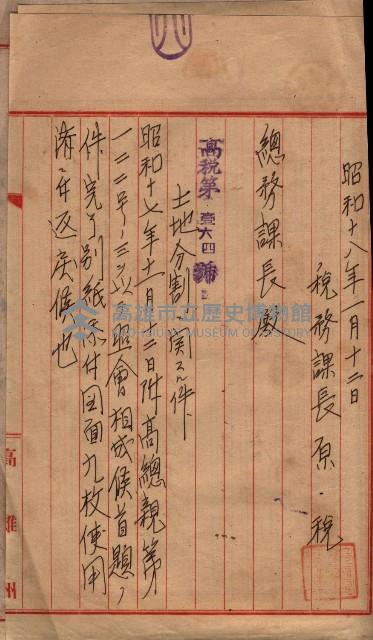 昭和十八年一月十二日
税務課長原・税
總務課長殿
高税第壹六四號
土地分割ニ関スル件
昭和十七年十一月二日附高總親第
一二二号ノ三ヲ以照會相成候首題ノ
件完了別紙添付図面九枚使用
済ニ付返戻候也
高雄州
高雄市立歷史博物館
KAOHSIUNG MUSEUM OF HISTORY